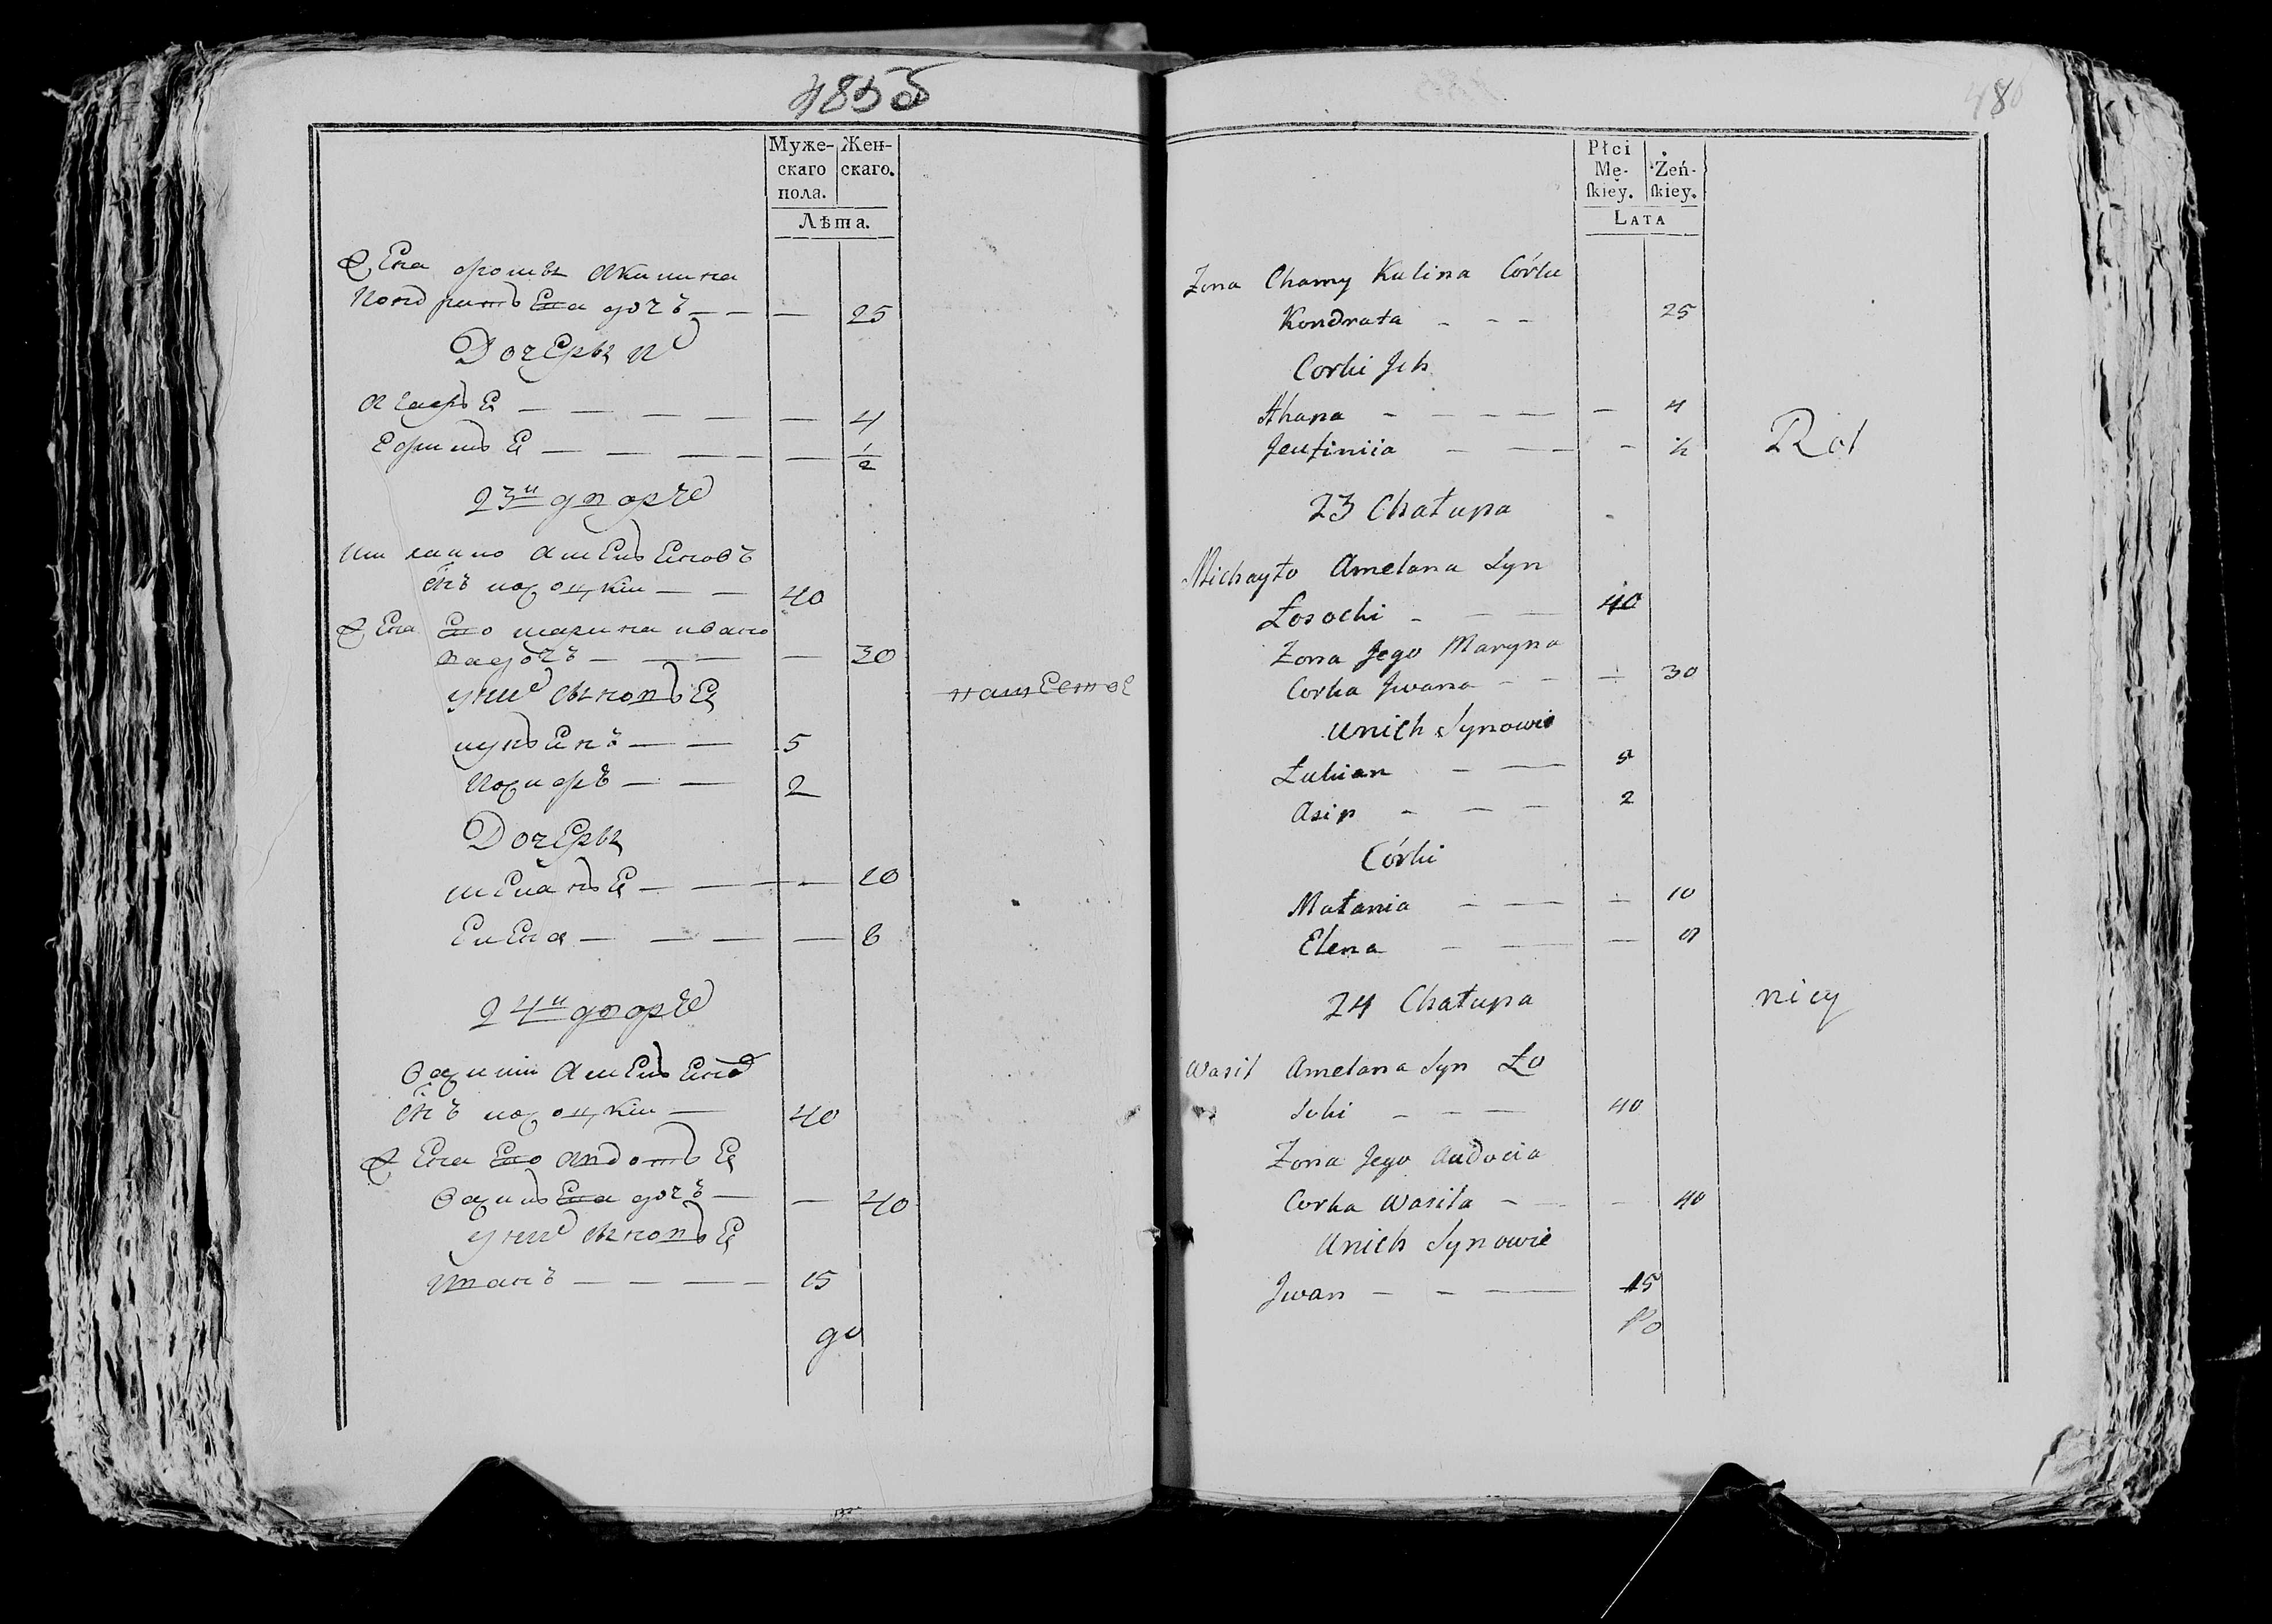 485б
Муже-
скаго
пола.
Жен-
скаго.
Лѣта.
Жена фомы Акилина
Кондратьева дочъ — — — 25
Дочеры ихъ
Агафья — — — — — 4
Ефимья — — — — — 1/2
23й дворъ
Михайло Амельяновъ
снъ лозоцкiй — — 40
Жена Его марина ивано
ва дочъ — — — — 30
у них сыновья
лукьянъ — — 5
Иозифъ — — 2
Дочеры
меланья — — — — 10
Елена — — — — 8
24й дворъ
Василiй Амельянов
снъ лозоцкiй — 40
Жена Его Авдотья
Васильева дочъ — — 40
у них сыновья
Иванъ — — — — 15
до
480
Płci
Mę-
ſkiey.
Żeń-
ſkiey.
LATA
Zona Chamy Kulina Córka
Kondrata - - - 25
Corki Jch
Ahapa - - - - — - 4
Jeufimiia - — - 1/2
Rol
23 Chałupa
Michayło Amelana Syn
Łosocki - — — 40
Zona Jego Maryna
Corka Jwana - - - 30
Unich Synowie
Łukian - — 5
Asip - — - 2
Córki
Małania - — - 10
Elena - — - 8
24 Chałupa
nicy
Wasil Amelana Syn Ło
socki - — — 40
Zona Jego Audocia
Corka Wasila - - - 40
Unich Synowie
Jwan - - — 15